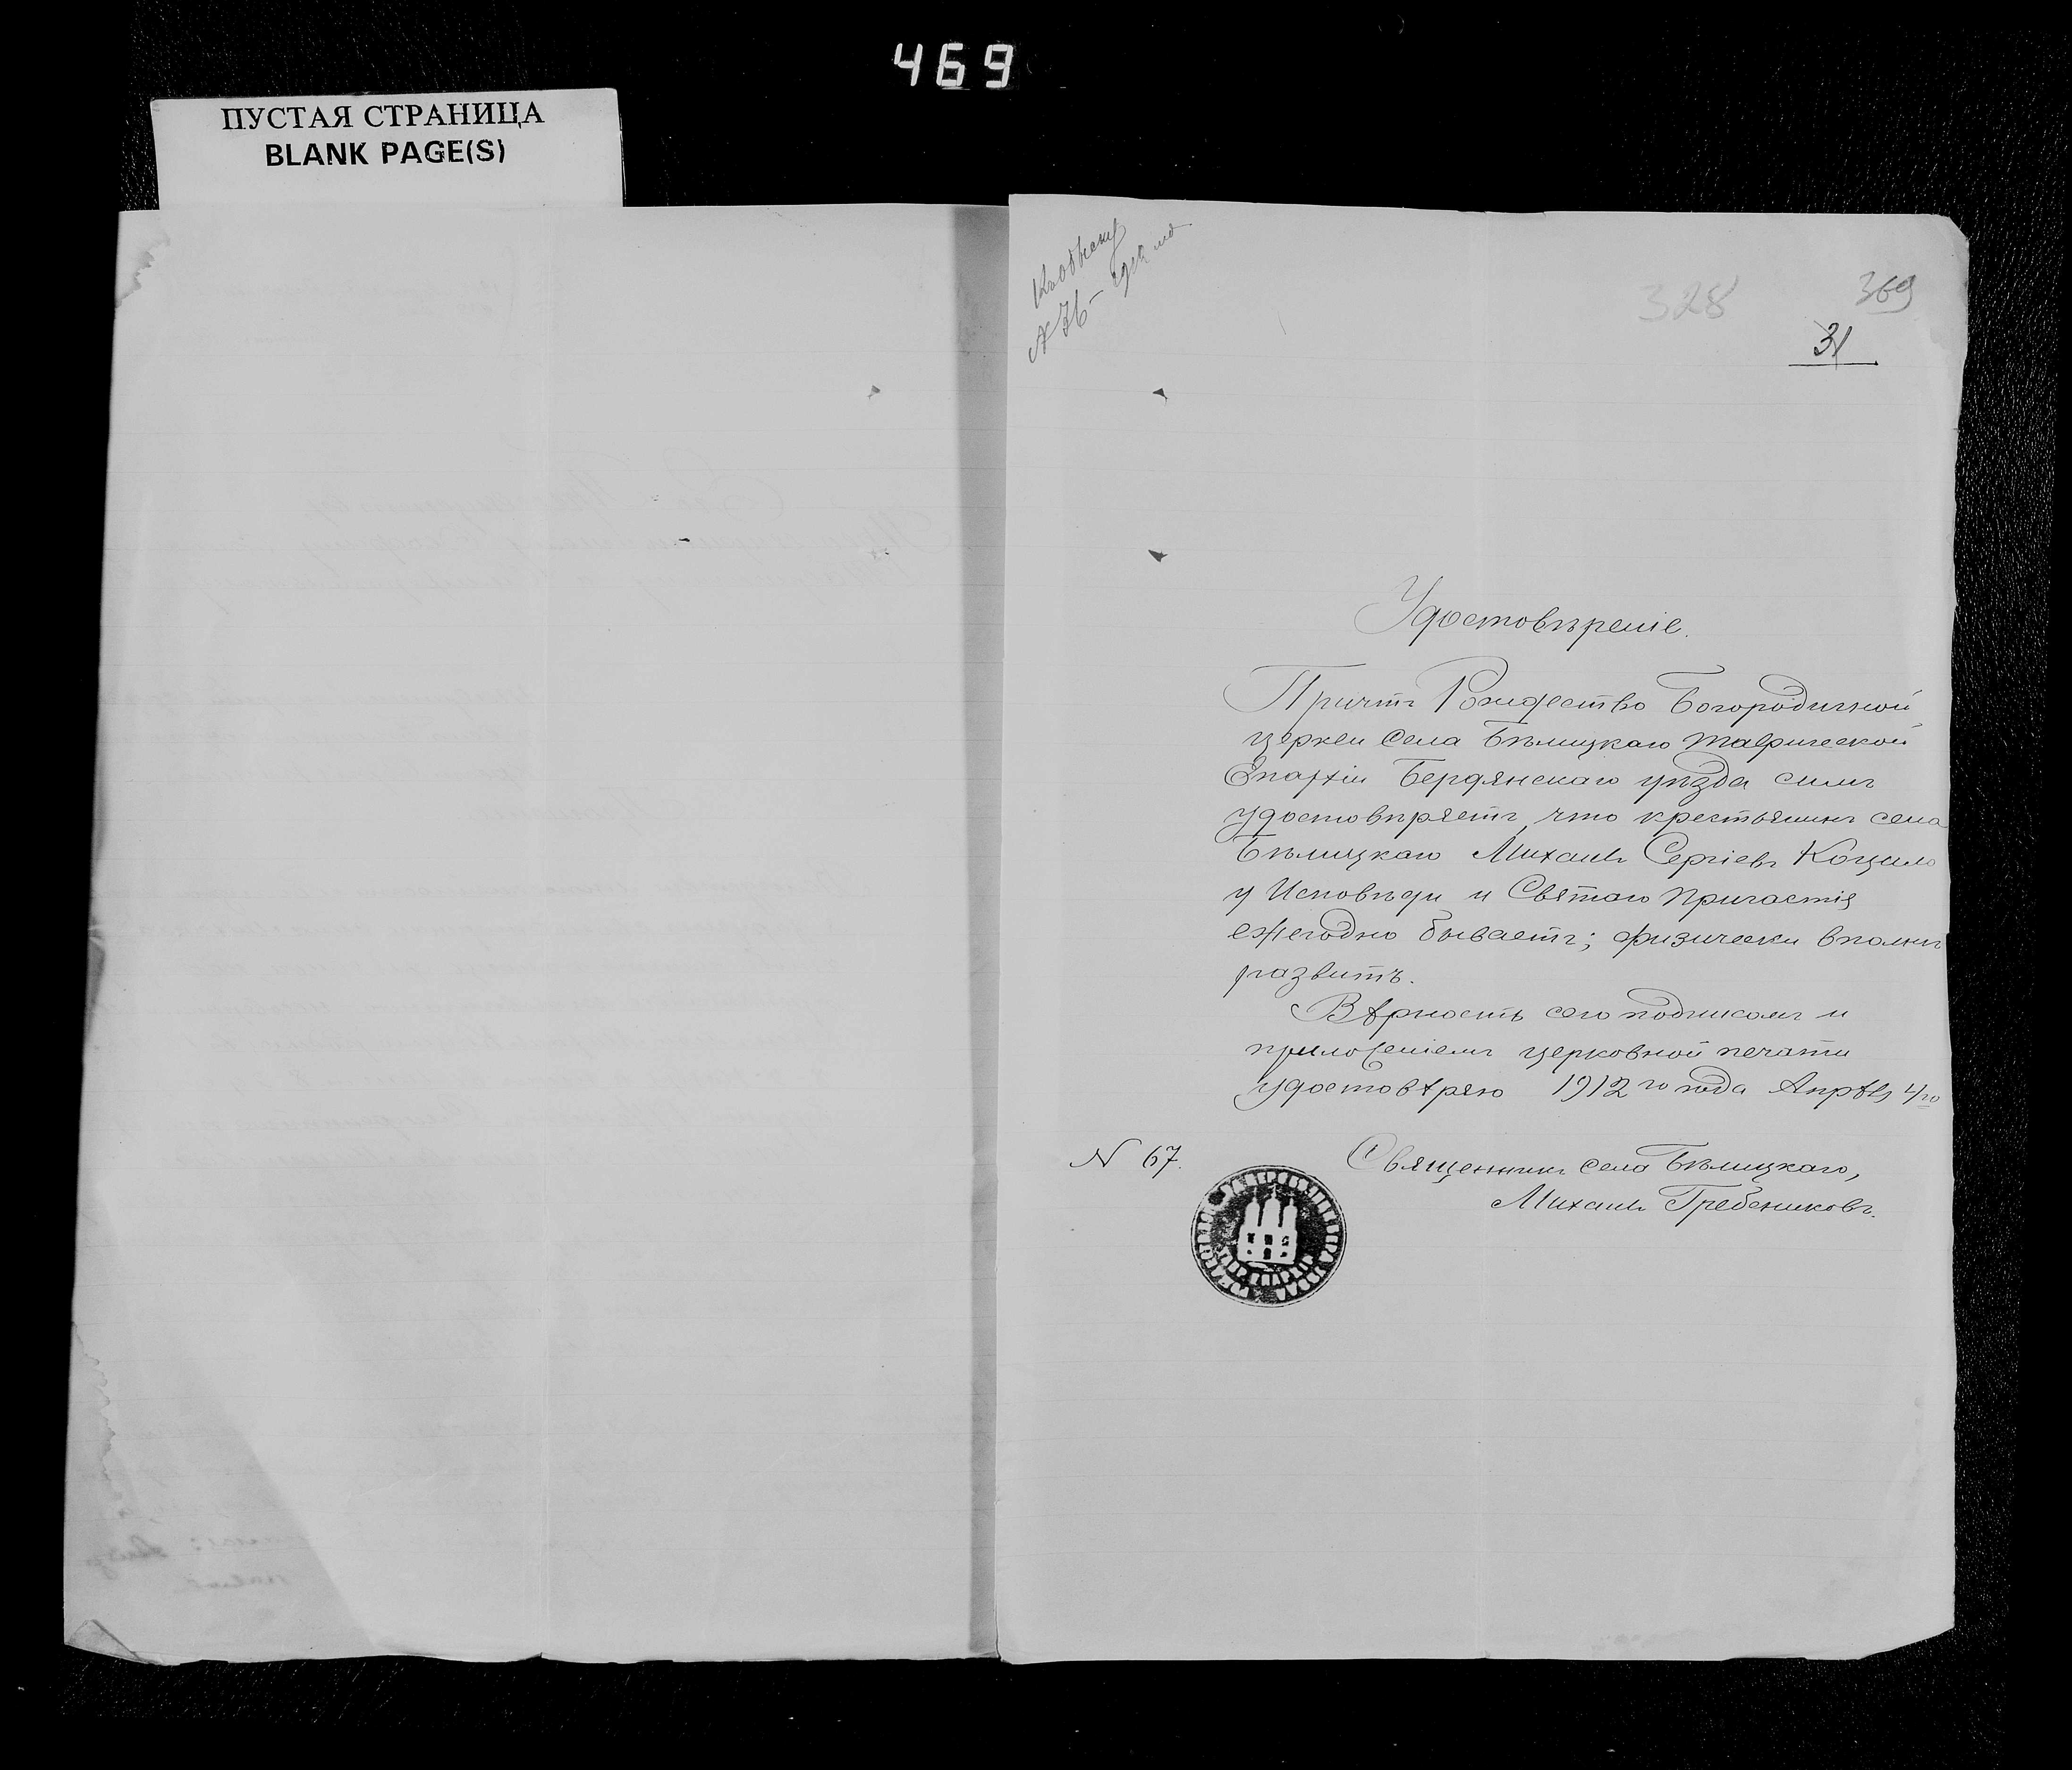 469
ПУСТАЯ СТРАНИЦА
BLANK PAGE(S)
328
369
31
Удостовѣреніе.
Причтъ Рождество Богородичной
церкви села Бѣлицкаго Таврической
Епархіи Бердянскаго уѣзда симъ
удостовѣряетъ, что крестьянинъ села
Бѣлицкаго Михаилъ Сергіевъ Коцило
у Исповѣди и Святаго Причастія
ежегодно бываетъ; физически вполнѣ
развитъ.
Вѣрность сего подписомъ и
приложеніемъ церковной печати
удостовѣряю 1912 го года Апрѣля 4/го
N 67.
Священникъ села Бѣлицкаго,
Михаилъ Гребениковъ.